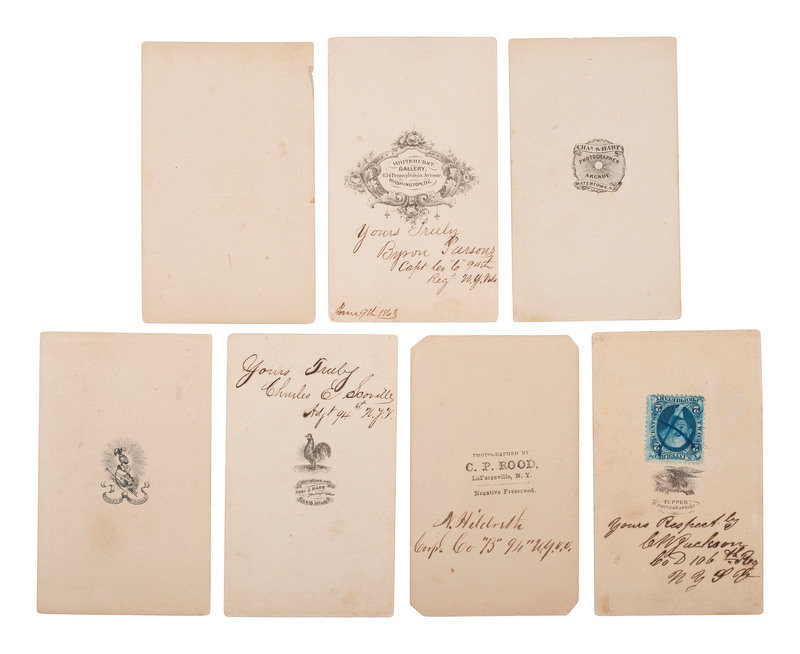 WHITEHURST
GALLERY,
434 Pennsylvania Avenue
WASHINGTON, D.C.
Yours Truly
Byron Parsons
Capt Co "G" 94th
Reg't N.Y. Vols
June 9th 1863
CHAS. S. HART
PHOTOGRAPHER
ARCADE
WATERTOWN N.Y.
Yours Truly
Charles E Scoville
Adjt 94th N.Y.V.
CHAS S. HART
PHOTOGRAPHED BY
C. P. ROOD,
LaFargeville, N. Y.
Negative Preserved.
N. Hildreth
Corp. Co "B" 94" N.Y.V.V.
TUPPER
PHOTOGRAPHIST
Yours Respectfy
C W Jackson
Co D 106th Reg
N Y S V